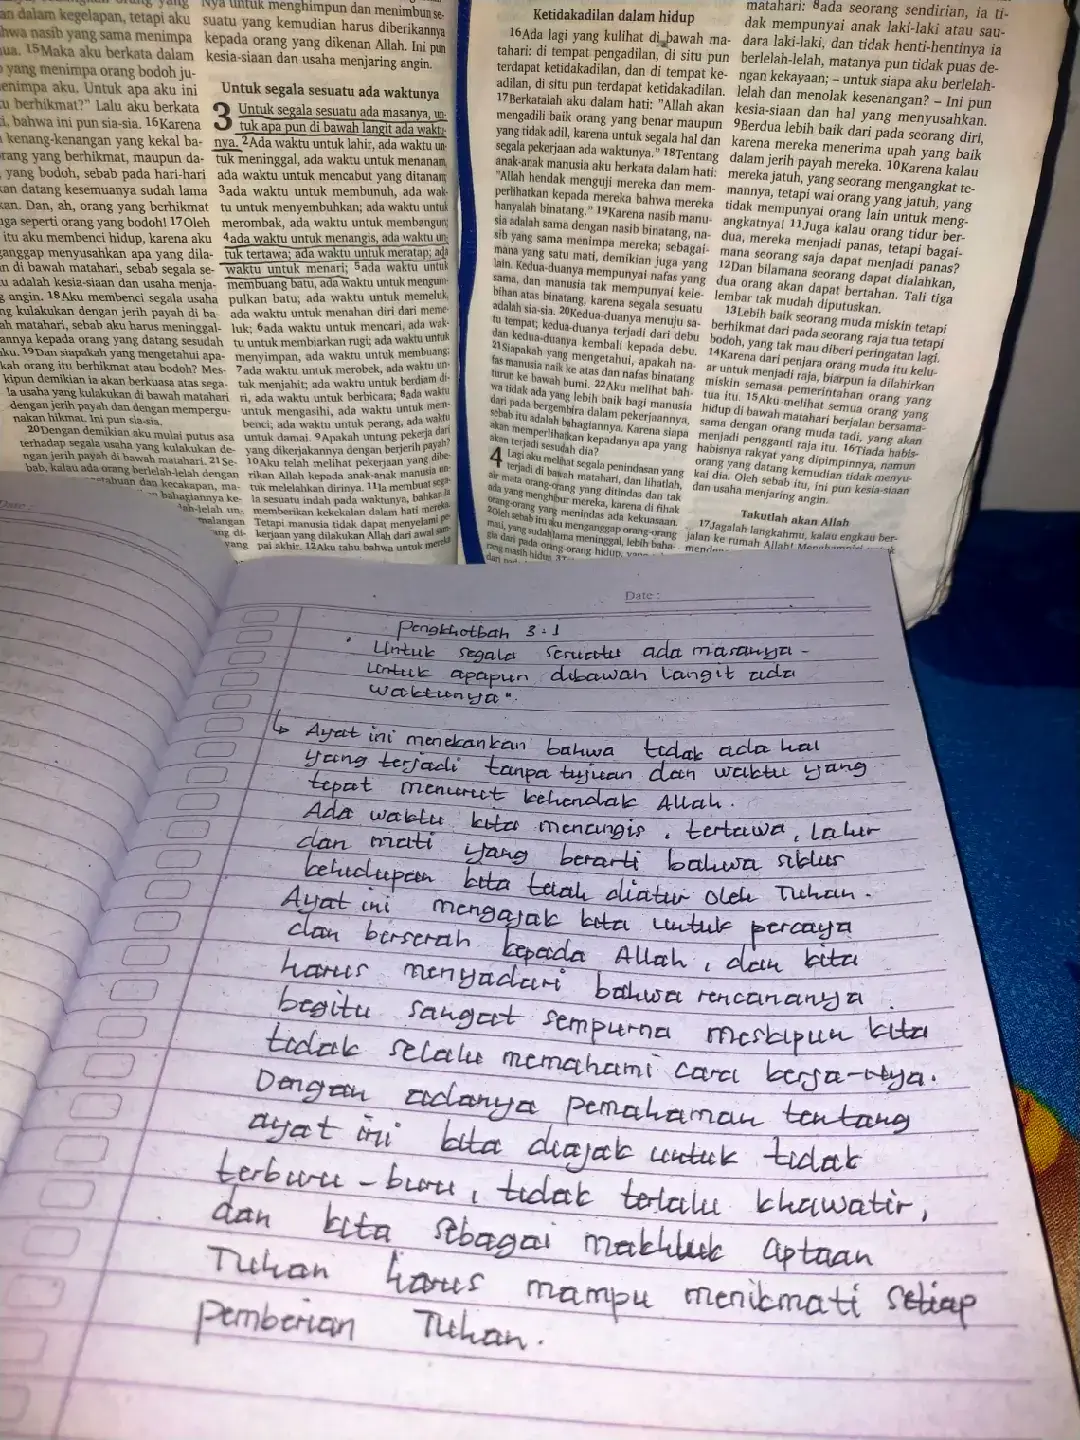 an dalam kegelapan, tetapi aku
hwa nasib yang sama menimpa
ua. 15Maka aku berkata dalam
yang menimpa orang bodoh ju-
enimpa aku. Untuk apa aku ini
u berhikmat?" Lalu aku berkata
i, bahwa ini pun sia-sia. 16Karena
kenang-kenangan yang kekal ba-
rang yang berhikmat, maupun da-
, yang bodoh, sebab pada hari-hari
an datang kesemuanya sudah lama
kan. Dan, ah, orang yang berhikmat
uga seperti orang yang bodoh! 17Oleh
itu aku membenci hidup, karena aku
ganggap menyusahkan apa yang dila-
n di bawah matahari, sebab segala se-
u adalah kesia-siaan dan usaha menja-
g angin. 18Aku membenci segala usaha
ng kulakukan dengan jerih payah di ba-
ah matahari, sebab aku harus meninggal-
annya kepada orang yang datang sesudah
aku. 19Dan siapakah yang mengetahui apa-
kah orang itu berhikmat atau bodoh? Mes-
kipun demikian ia akan berkuasa atas sega-
la usaha yang kulakukan di bawah matahari
dengan jerih payah dan dengan mempergu-
nakan hikmat. Ini pun sia-sia.
20Dengan demikian aku mulai putus asa
terhadap segala usaha yang kulakukan de-
ngan jerih payah di bawah matahari. 21Se-
bab, kalau ada orang berlelah-lelah dengan
Nya untuk menghimpun dan menimbun se-
suatu yang kemudian harus diberikannya
kepada orang yang dikenan Allah. Ini pun
kesia-siaan dan usaha menjaring angin.
Untuk segala sesuatu ada waktunya
3 Untuk segala sesuatu ada masanya, un-
tuk apa pun di bawah langit ada waktu-
nya. 2Ada waktu untuk lahir, ada waktu un-
tuk meninggal, ada waktu untuk menanam,
ada waktu untuk mencabut yang ditanam;
3ada waktu untuk membunuh, ada wak-
tu untuk menyembuhkan; ada waktu untuk
merombak, ada waktu untuk membangun;
4ada waktu untuk menangis, ada waktu un-
tuk tertawa; ada waktu untuk meratap; ada
waktu untuk menari; 5ada waktu untuk
membuang batu, ada waktu untuk mengum-
pulkan batu; ada waktu untuk memeluk,
ada waktu untuk menahan diri dari meme-
luk; 6ada waktu untuk mencari, ada wak-
tu untuk membiarkan rugi; ada waktu untuk
menyimpan, ada waktu untuk membuang;
7ada waktu untuk merobek, ada waktu un-
tuk menjahit; ada waktu untuk berdiam di-
ri, ada waktu untuk berbicara; 8ada waktu
untuk mengasihi, ada waktu untuk mem-
benci; ada waktu untuk perang, ada waktu
untuk damai. 9Apakah untung pekerja dari
yang dikerjakannya dengan berjerih payah?
10Aku telah melihat pekerjaan yang dibe-
rikan Allah kepada anak-anak manusia un-
tuk melelahkan dirinya. 11Ia membuat sega-
la sesuatu indah pada waktunya, bahkan Ia
memberikan kekekalan dalam hati mereka.
Tetapi manusia tidak dapat menyelami pe-
kerjaan yang dilakukan Allah dari awal sam-
pai akhir. 12Aku tahu bahwa untuk mereka
Ketidakadilan dalam hidup
16Ada lagi yang kulihat di bawah ma-
tahari: di tempat pengadilan, di situ pun
terdapat ketidakadilan, dan di tempat ke-
adilan, di situ pun terdapat ketidakadilan.
17Berkatalah aku dalam hati: "Allah akan
mengadili baik orang yang benar maupun
yang tidak adil, karena untuk segala hal dan
segala pekerjaan ada waktunya." 18Tentang
anak-anak manusia aku berkata dalam hati:
"Allah hendak menguji mereka dan mem-
perlihatkan kepada mereka bahwa mereka
hanyalah binatang." 19Karena nasib manu-
sia adalah sama dengan nasib binatang, na-
sib yang sama menimpa mereka; sebagai-
mana yang satu mati, demikian juga yang
lain. Kedua-duanya mempunyai nafas yang
sama, dan manusia tak mempunyai kele-
bihan atas binatang, karena segala sesuatu
adalah sia-sia. 20Kedua-duanya menuju sa-
tu tempat; kedua-duanya terjadi dari debu
dan kedua-duanya kembali kepada debu.
21Siapakah yang mengetahui, apakah na-
fas manusia naik ke atas dan nafas binatang
turun ke bawah bumi. 22Aku melihat bah-
wa tidak ada yang lebih baik bagi manusia
dari pada bergembira dalam pekerjaannya,
sebab itu adalah bahagiannya. Karena siapa
akan memperlihatkan kepadanya apa yang
akan terjadi sesudah dia?
4 Lagi aku melihat segala penindasan yang
terjadi di bawah matahari, dan lihatlah,
air mata orang-orang yang ditindas dan tak
ada yang menghibur mereka, karena di fihak
orang-orang yang menindas ada kekuasaan.
2Oleh sebab itu aku menganggap orang-orang
mati, yang sudah lama meninggal, lebih baha-
gia dari pada orang-orang hidup, yang
matahari: 8ada seorang sendirian, ia ti-
dak mempunyai anak laki-laki atau sau-
dara laki-laki, dan tidak henti-hentinya ia
berlelah-lelah, matanya pun tidak puas de-
ngan kekayaan; – untuk siapa aku berlelah-
lelah dan menolak kesenangan? – Ini pun
kesia-siaan dan hal yang menyusahkan.
9Berdua lebih baik dari pada seorang diri,
karena mereka menerima upah yang baik
dalam jerih payah mereka. 10Karena kalau
mereka jatuh, yang seorang mengangkat te-
mannya, tetapi wai orang yang jatuh, yang
tidak mempunyai orang lain untuk meng-
angkatnya! 11Juga kalau orang tidur ber-
dua, mereka menjadi panas, tetapi bagai-
mana seorang saja dapat menjadi panas?
12Dan bilamana seorang dapat dialahkan,
dua orang akan dapat bertahan. Tali tiga
lembar tak mudah diputuskan.
13Lebih baik seorang muda miskin tetapi
berhikmat dari pada seorang raja tua tetapi
bodoh, yang tak mau diberi peringatan lagi.
14Karena dari penjara orang muda itu kelu-
ar untuk menjadi raja, biarpun ia dilahirkan
miskin semasa pemerintahan orang yang
tua itu. 15Aku melihat semua orang yang
hidup di bawah matahari berjalan bersama-
sama dengan orang muda tadi, yang akan
menjadi pengganti raja itu. 16Tiada habis-
habisnya rakyat yang dipimpinnya, namun
orang yang datang kemudian tidak menyu-
kai dia. Oleh sebab itu, ini pun kesia-siaan
dan usaha menjaring angin.
Takutlah akan Allah
17Jagalah langkahmu, kalau engkau ber-
jalan ke rumah Allah!
Date :
Pengkhotbah 3:1
" Untuk segala sesuatu ada masanya -
untuk apapun dibawah langit ada
waktunya ".
↳ Ayat ini menekankan bahwa tidak ada hal
yang terjadi tanpa tujuan dan waktu yang
tepat menurut kehendak Allah.
Ada waktu kita menangis, tertawa, lahir
dan mati yang berarti bahwa siklus
kehidupan kita telah diatur oleh Tuhan.
Ayat ini mengajak kita untuk percaya
dan berserah kepada Allah, dan kita
harus menyadari bahwa rencananya
begitu sangat sempurna meskipun kita
tidak selalu memahami cara kerja-Nya.
Dengan adanya pemahaman tentang
ayat ini kita diajak untuk tidak
terburu-buru, tidak terlalu khawatir,
dan kita sebagai makhluk ciptaan
Tuhan harus mampu menikmati setiap
pemberian Tuhan.